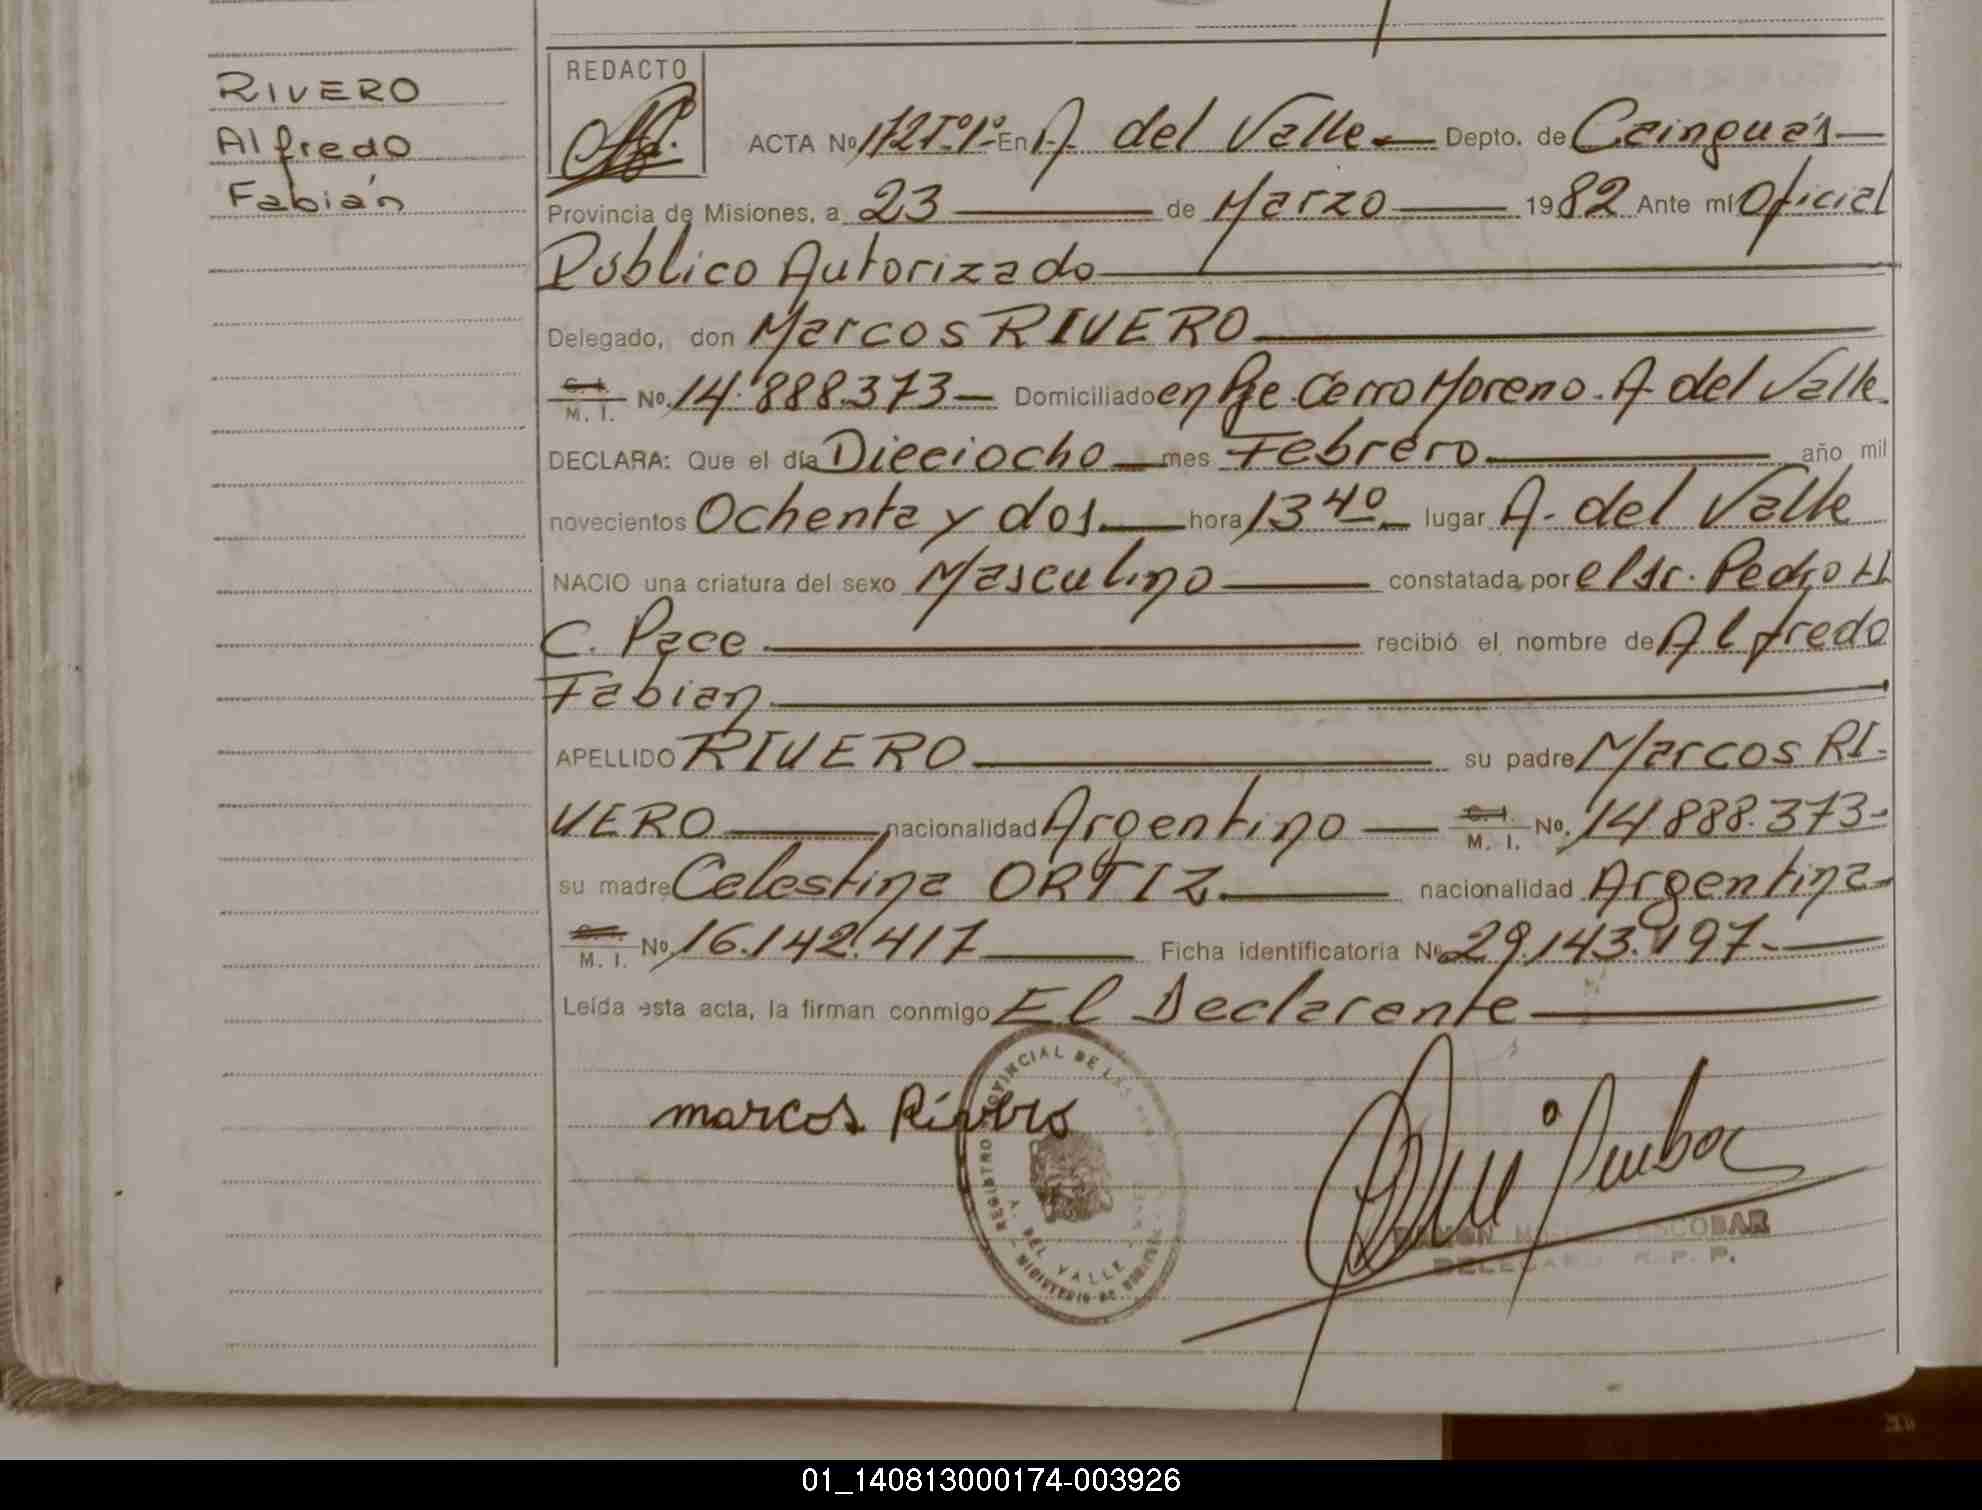 RIVERO
Alfredo
Fabián
REDACTO
ACTA Nº 172 Tº 1º En A. del Valle Depto. de Cainguás
Provincia de Misiones, a 23 de Marzo 1982 Ante mí Oficial
Público Autorizado
Delegado, don Marcos RIVERO
C. I. M. I. No. 14.888.373 Domiciliado en Pje. Cerro Moreno. A. del Valle
DECLARA: Que el día Dieciocho mes Febrero año mil
novecientos Ochenta y dos hora 13 40 lugar A. del Valle
NACIO una criatura del sexo Masculino constatada por el sr. Pedro H
C. Pace recibió el nombre de Alfredo
Fabian
APELLIDO RIVERO su padre Marcos RI-
VERO nacionalidad Argentino C. I. M. I. No. 14.888.373-
su madre Celestina ORTIZ nacionalidad Argentina
M. I. No. 16.142.417 Ficha identificatoria No 29.143.197-
Leída esta acta, la firman conmigo El Declarente
marcos Rivero
REGISTRO PROVINCIAL DE LAS
A. DEL VALLE
MINISTERIO DE
ESCOBAR
DELEGADO R. P. P.
01_140813000174-003926